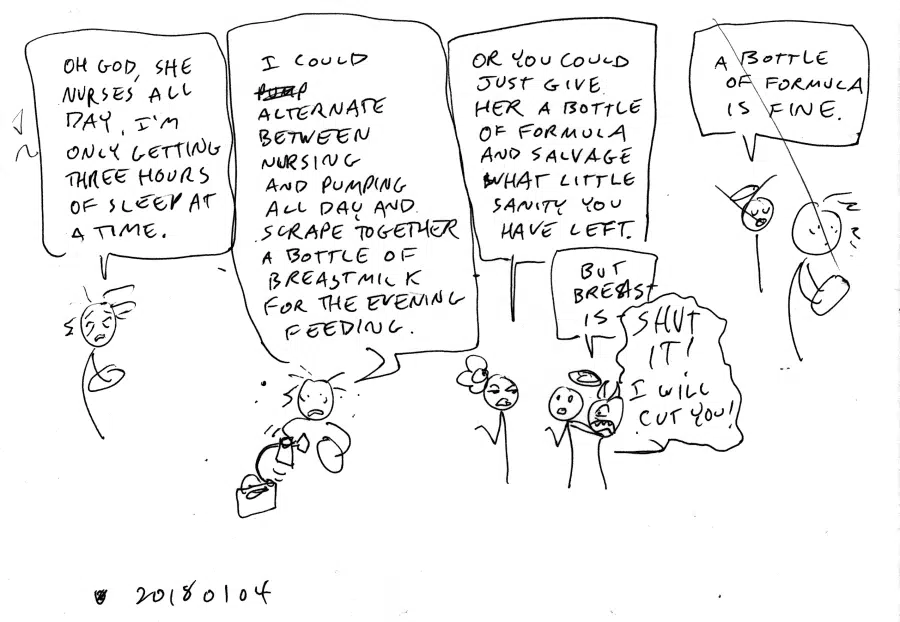 OH GOD, SHE
NURSES ALL
DAY, I'M
ONLY GETTING
THREE HOURS
OF SLEEP AT
A TIME.
I COULD
PUMP
ALTERNATE
BETWEEN
NURSING
AND PUMPING
ALL DAY AND
SCRAPE TOGETHER
A BOTTLE OF
BREASTMILK
FOR THE EVENING
FEEDING.
OR YOU COULD
JUST GIVE
HER A BOTTLE
OF FORMULA
AND SALVAGE
WHAT LITTLE
SANITY YOU
HAVE LEFT.
BUT
BREAST
IS
SHUT
IT!
I WILL
CUT YOU!
A BOTTLE
OF FORMULA
IS FINE.
20180104